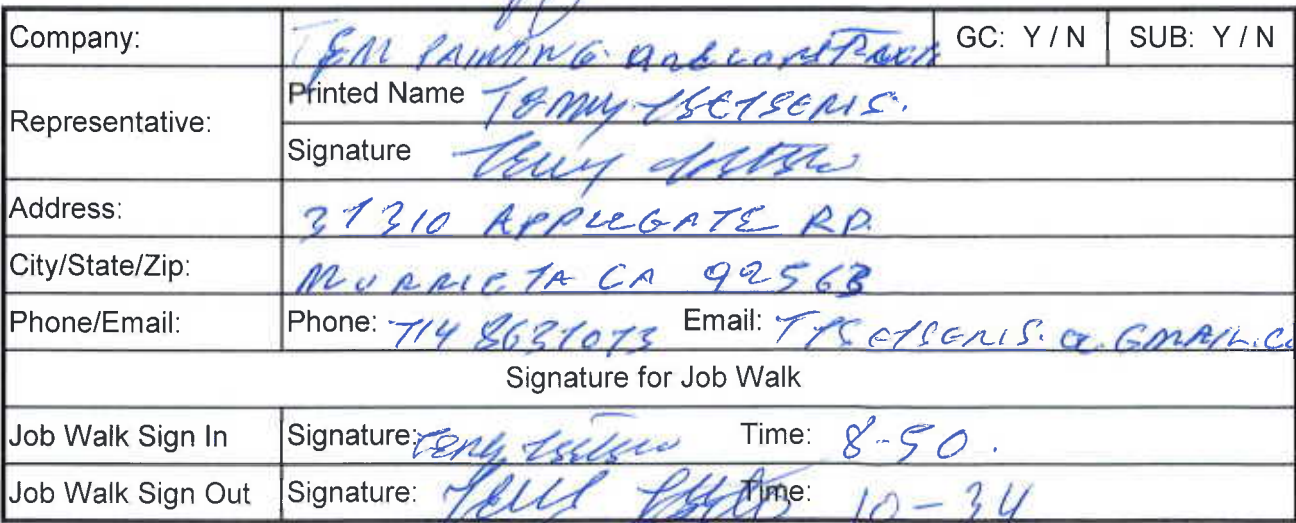 Company: PAINTING GC: Y / N SUB: Y / N
Representative:
Printed Name
Signature
Address: 31310 APPLEGATE RD.
City/State/Zip: MURRIETA CA 92563
Phone/Email: Phone: 714 8631073 Email: TTSETSERIS.@.GMAIL.C
Signature for Job Walk
Job Walk Sign In Signature: Time: 8-50.
Job Walk Sign Out Signature: Time: 10-34